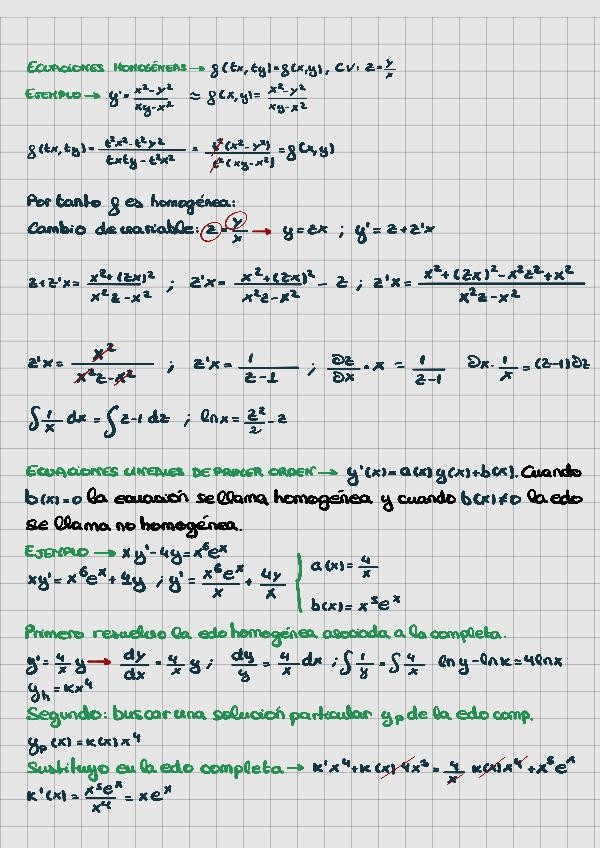 ECUACIONES HOMOGÉNEAS → g(tx,ty)=g(x,y), CV: z=y/x
EJEMPLO → y'= (x²-y²)/(xy-x²) ≈ g(x,y)= (x²-y²)/(xy-x²)
g(tx,ty)= (t²x²-t²y²)/(txty-t²x²) = t²(x²-y²)/t²(xy-x²) = g(x,y)
Por tanto g es homogénea:
Cambio de variable: z=y/x → y=zx ; y'=z+z'x
z+z'x= (x²+(zx)²)/(x²z-x²) ; z'x= (x²+(zx)²)/(x²z-x²) - z ; z'x= (x²+(zx)²-x²z²+x²)/(x²z-x²)
z'x= x²/(x²z-x²) ; z'x= 1/(z-1) ; ∂z/∂x · x = 1/(z-1) ∂x·1/x=(z-1)∂z
∫1/x dx = ∫z-1 dz ; lnx= z²/2 - z
ECUACIONES LINEALES DE PRIMER ORDEN → y'(x)=a(x)y(x)+b(x). Cuando
b(x)=0 la ecuación se llama homogénea y cuando b(x)≠0 la edo
se llama no homogénea.
EJEMPLO → xy'-4y=x⁶eˣ
xy'=x⁶eˣ+4y ; y'= x⁶eˣ/x + 4y/x { a(x)= 4/x
b(x)=x⁵eˣ
Primero resuelvo la edo homogénea asociada a la completa.
y'= 4/x y → dy/dx = 4/x y ; dy/y = 4/x dx ; ∫1/y = ∫4/x lny-lnk=4lnx
yₕ=kx⁴
Segundo: buscar una solución particular yₚ de la edo comp.
yₚ(x)=k(x)x⁴
Sustituyo en la edo completa → k'x⁴+k(x)4x³= 4/x k(x)x⁴+x⁵eˣ
k'(x)= x⁵eˣ/x⁴ = xeˣ